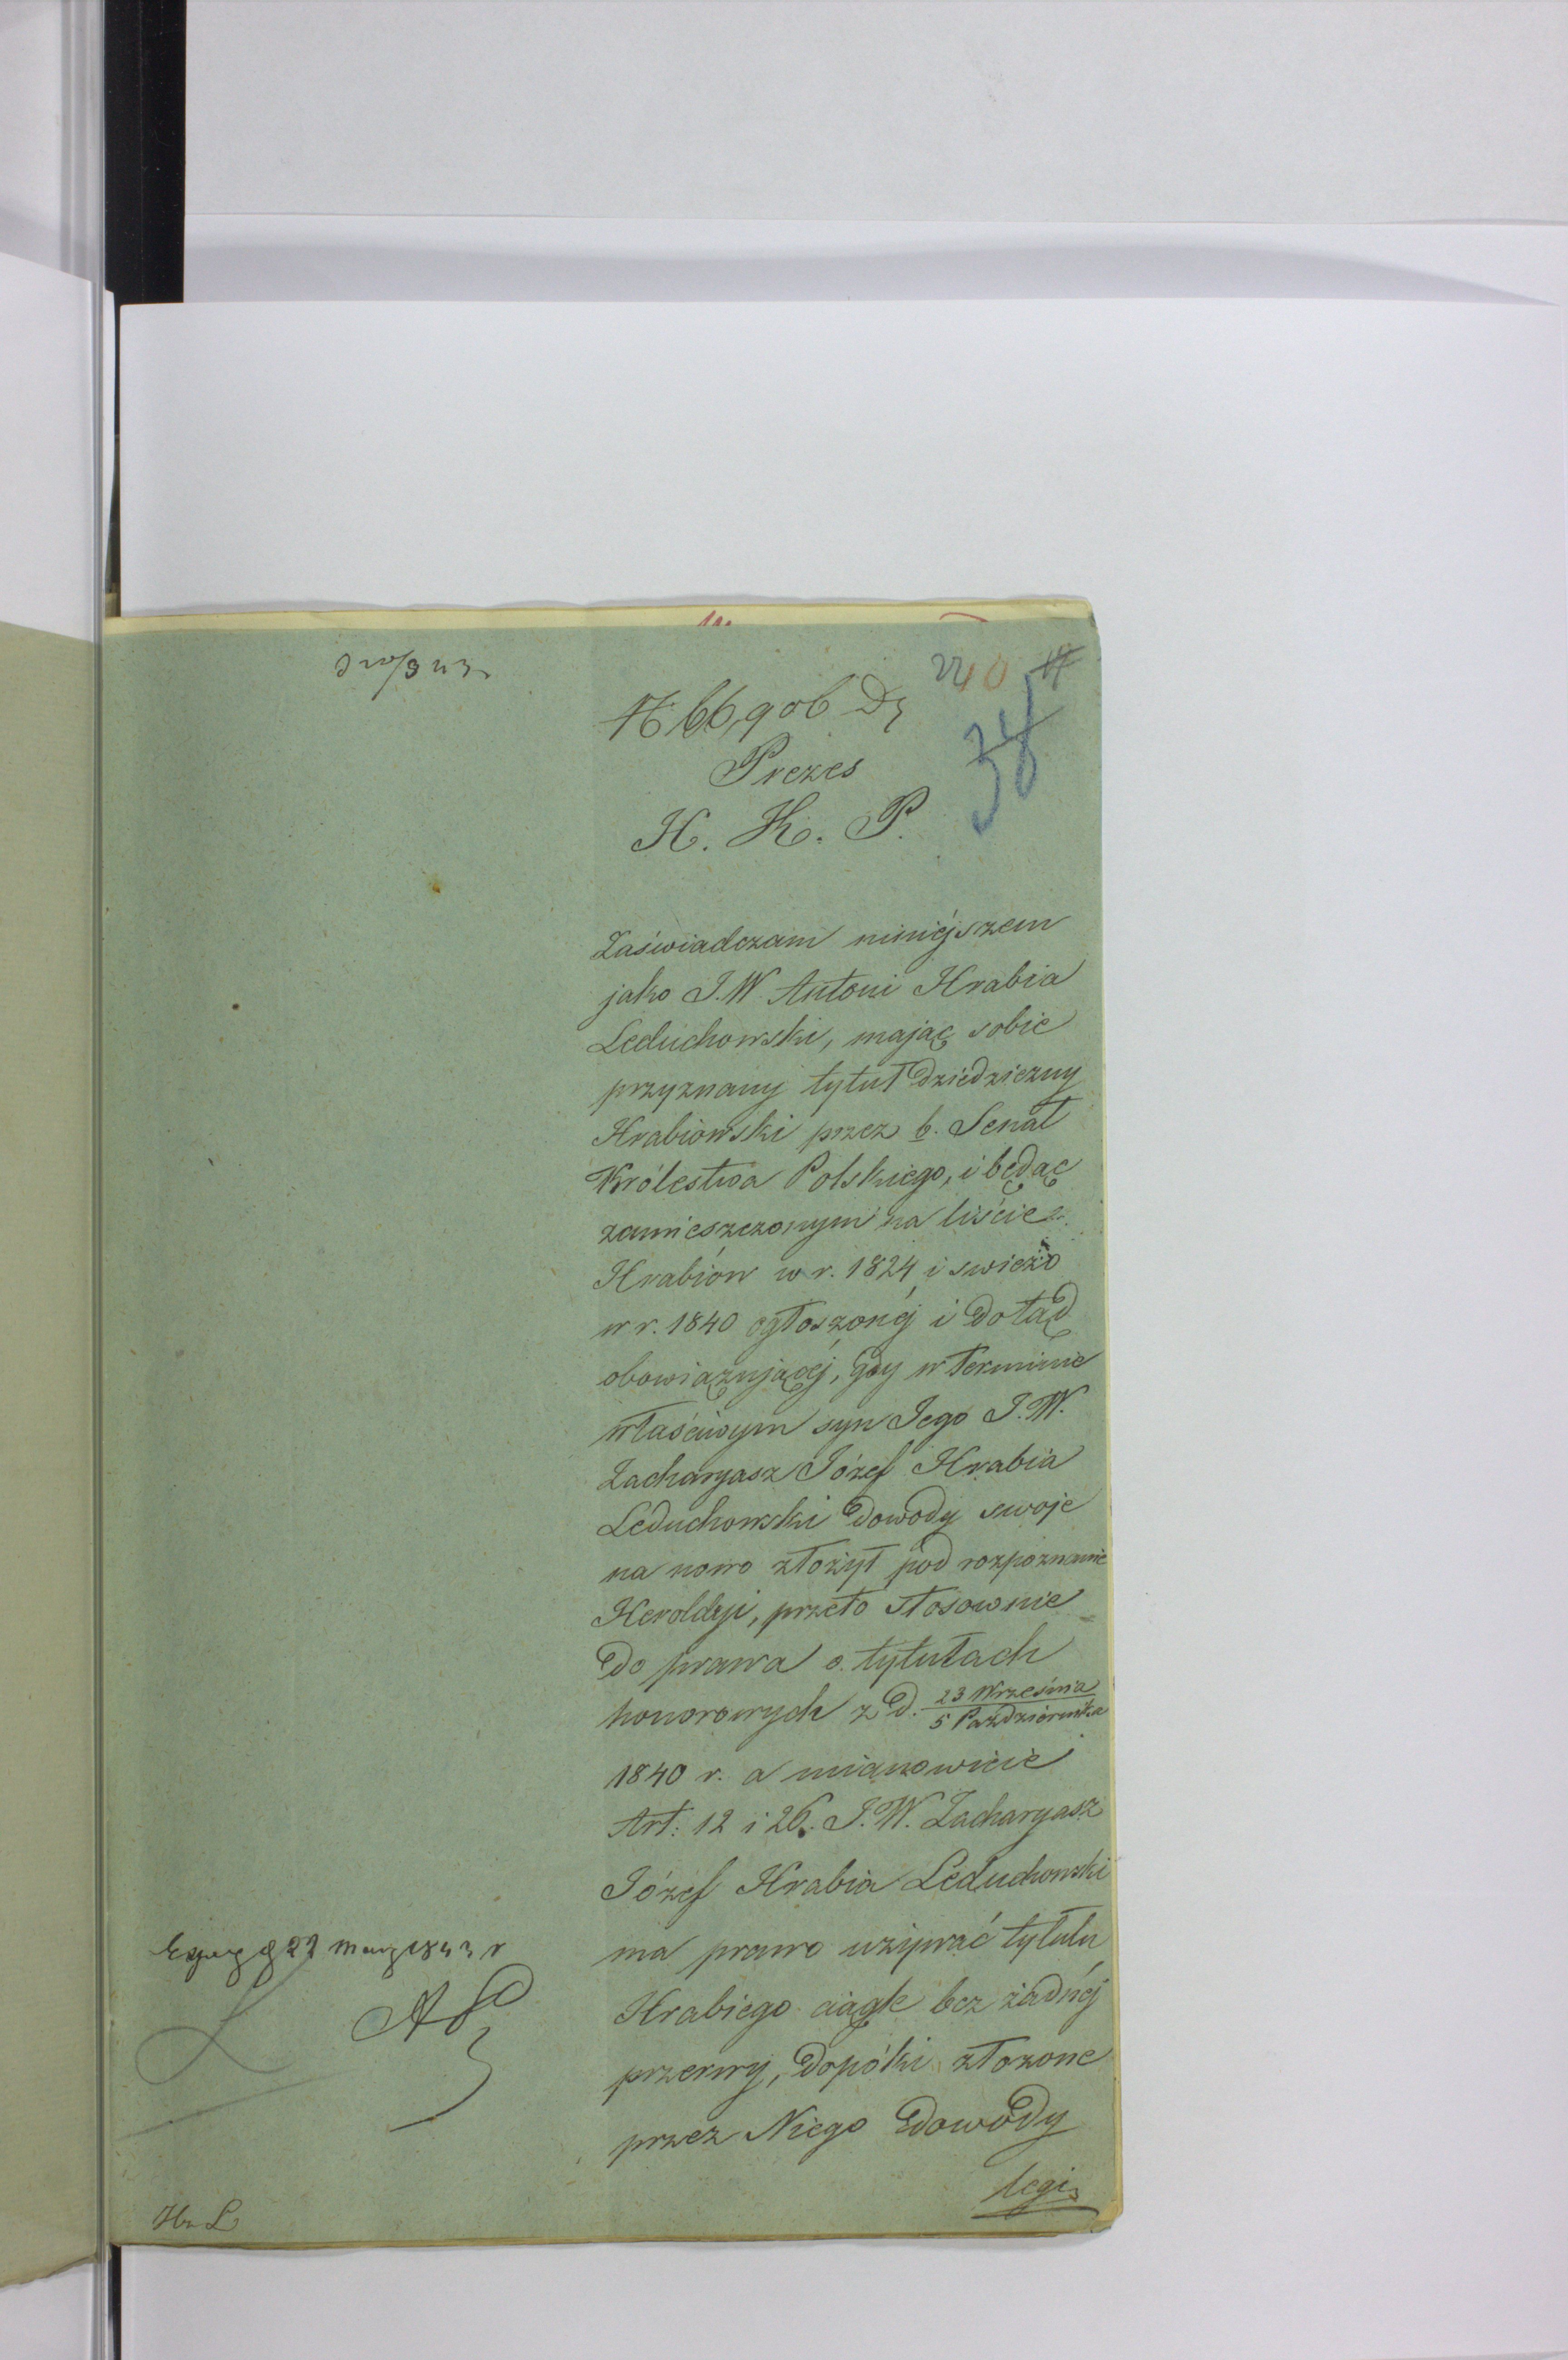 N 66,906 Dz
Prezes
H. K. P.
Zaświadczam niniéjszem
jako J.W. Antoni Hrabia
Leduchowski, mając sobie
przyznany tytuł dziedziczny
Hrabiowski przez b. Senat
Królestwa Polskiego, i będąc
zamieszczonym na liście
Hrabiów w r. 1824 i swieżo
w r. 1840 ogłoszonéj i dotąd
obowiązującéj, gdy w terminie
właściwym syn Jego J.W.
Zacharyasz Józef Hrabia
Leduchowski dowody swoje
na nowo złożył pod rozpoznanie
Heroldyi, przeto stosownie
do prawa o tytułach
honorowych z d. 23 Września / 5 Października
1840 r. a mianowicie
Art: 12 i 26. J.W. Zacharyasz
Józef Hrabia Leduchowski
ma prawo używać tytułu
Hrabiego ciągle bez żadnéj
przerwy, dopóki złozone
przez Niego dowody
legi
22 Marz 1843 r
Hr L